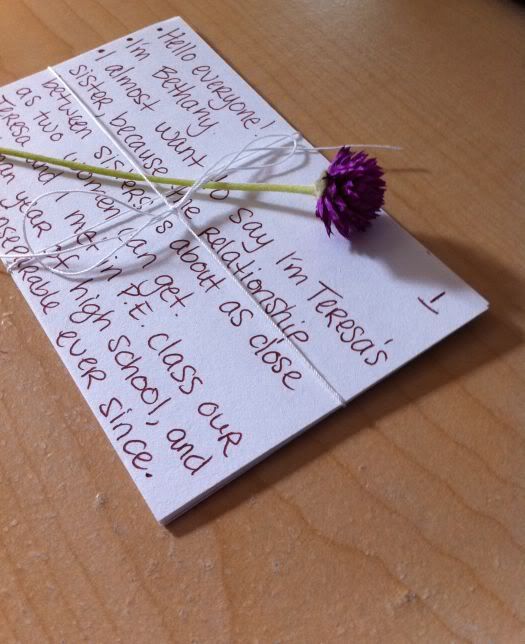 1
• Hello everyone!
• I'm Bethany.
• I almost want to say I'm Teresa's
sister because the relationship
between sisters is about as close
as two women can get.
Teresa and I met in P.E. class our
year of high school, and
ever since.